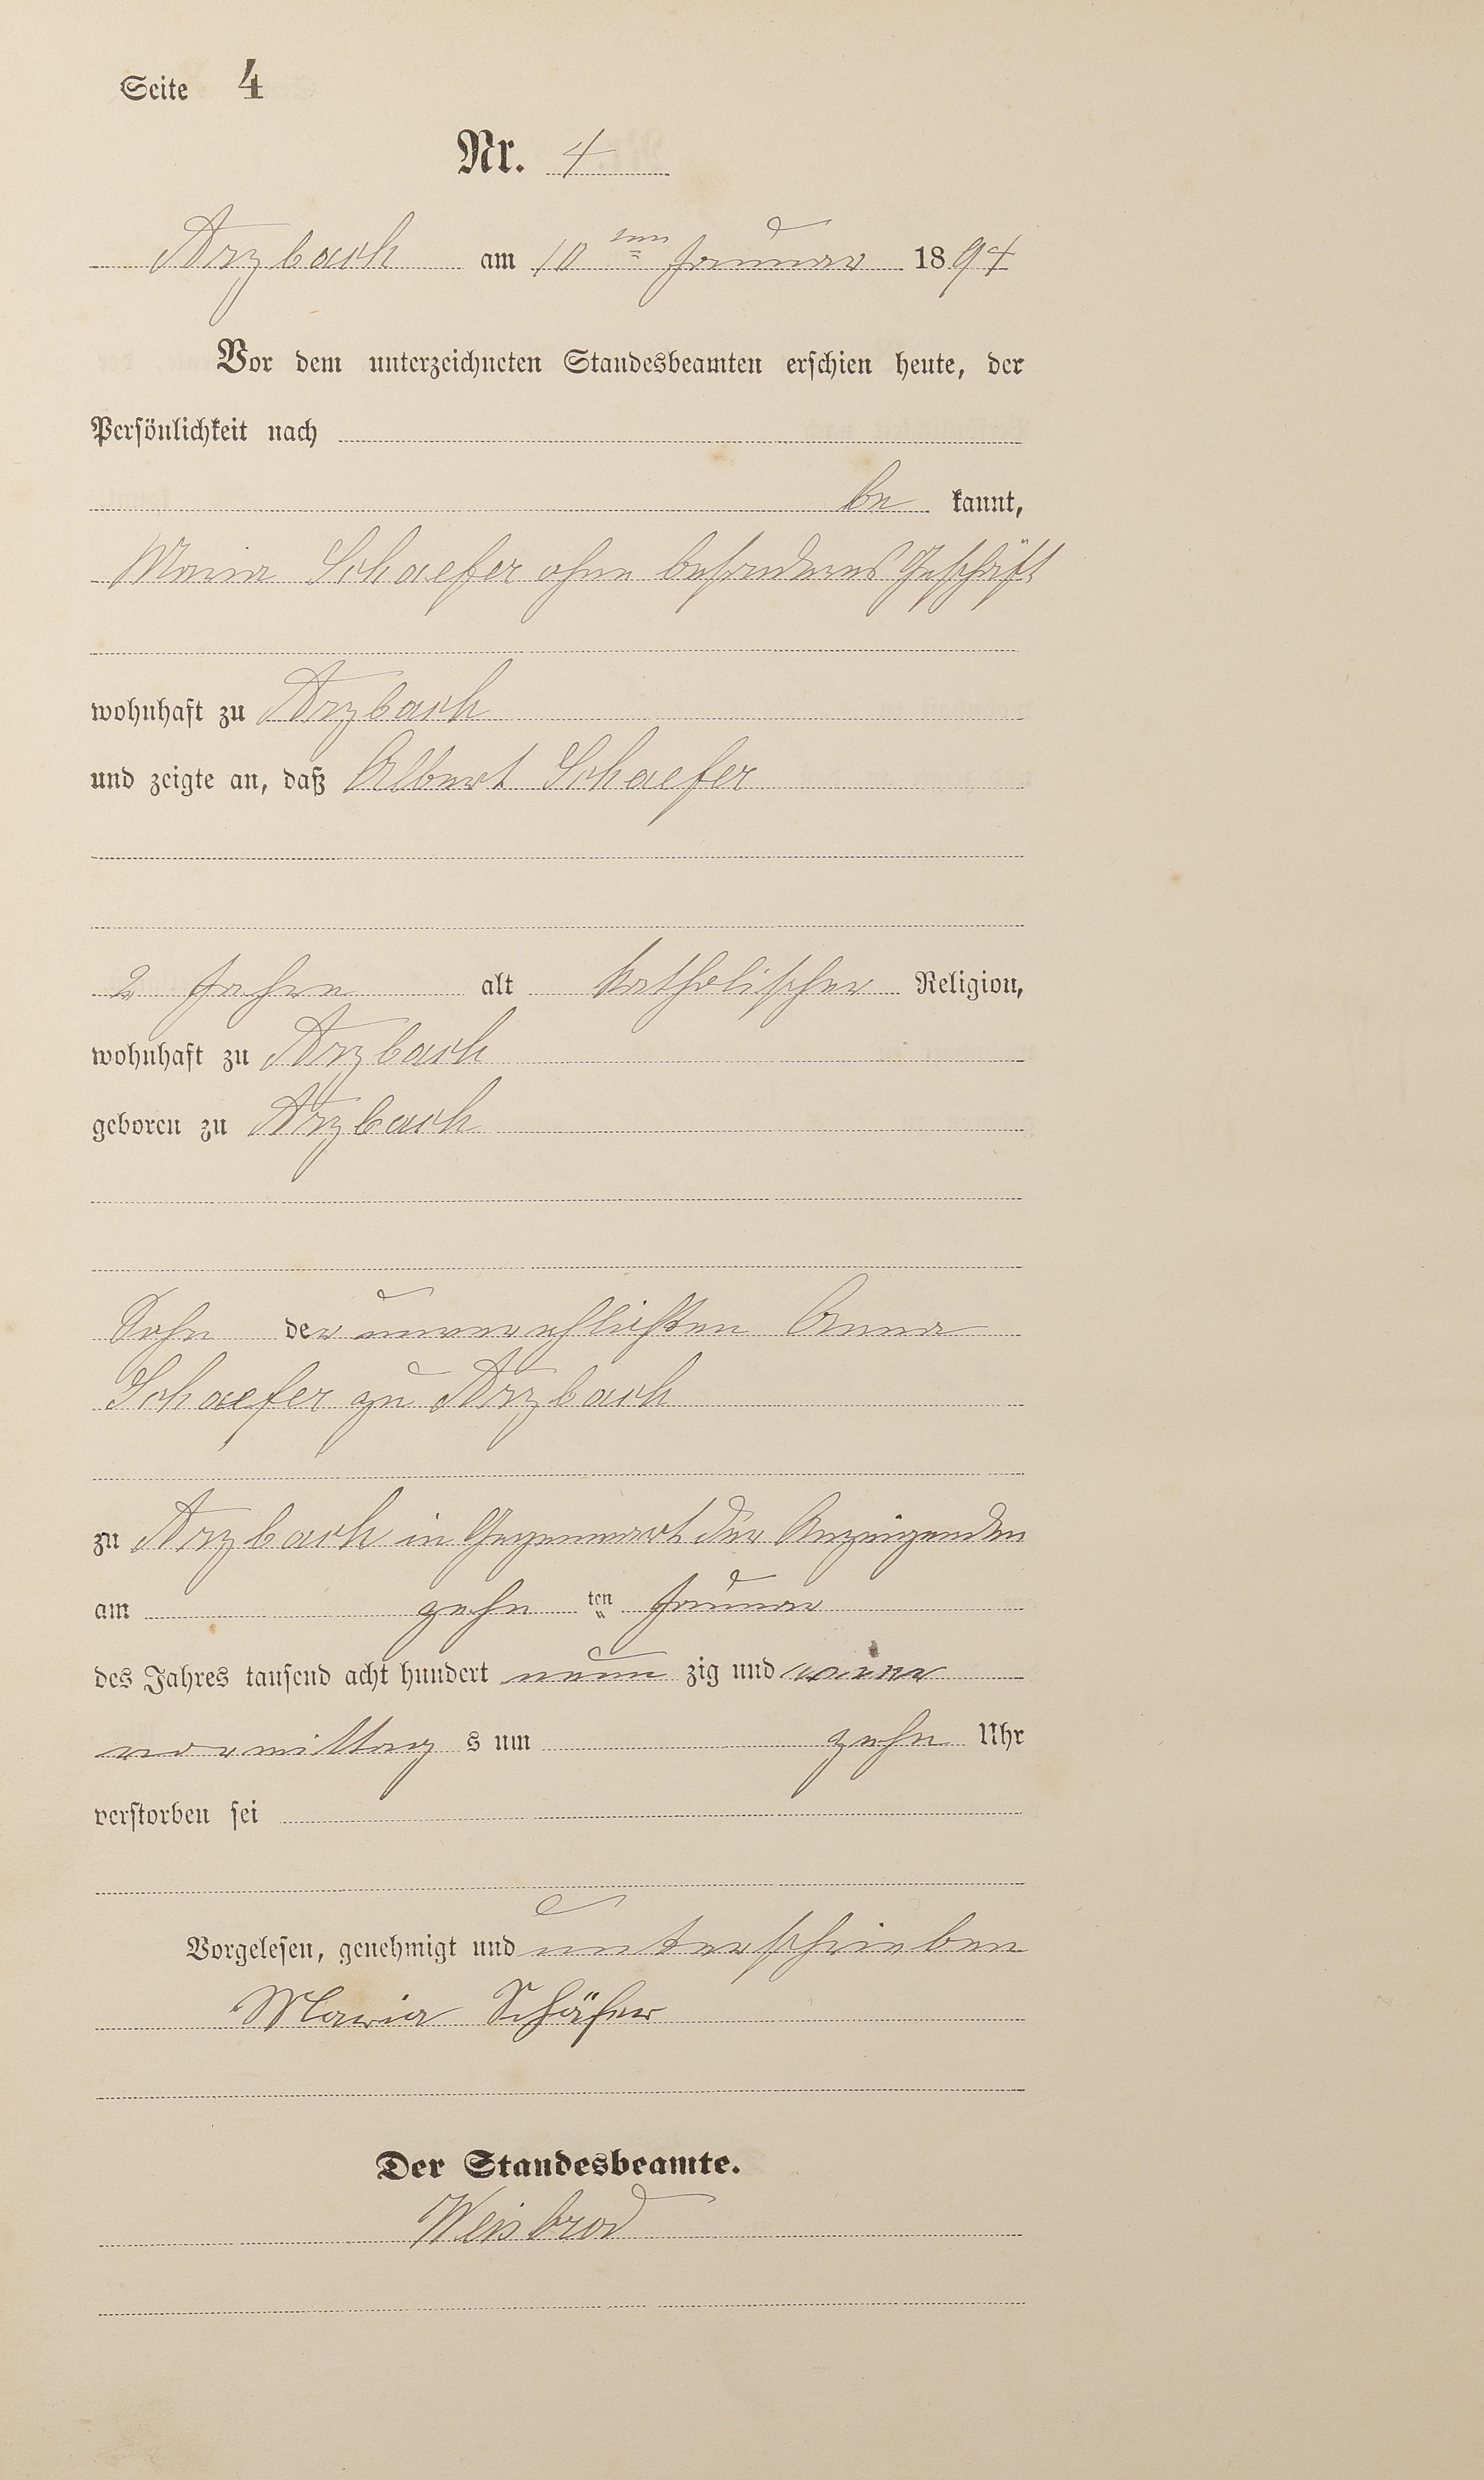 Seite 4
Nr. 4
Arzbach am 10ten Januar 1894
Vor dem unterzeichneten Standesbeamten erschien heute, der
Persönlichkeit nach
be kannt,
Maria Schaefer ohne besonderes Geschäft
wohnhaft zu Arzbach
und zeigte an, daß Albert Schaefer
2 Jahre alt katholischer Religion,
wohnhaft zu Arzbach
geboren zu Arzbach
Sohn der unverehlichten Anna
Schaefer zu Arzbach
zu Arzbach in Gegenwart der Anzeigenden
am zehn ten Januar
des Jahres tausend acht hundert neun zig und vier
vormittag s um zehn Uhr
verstorben sei
Vorgelesen, genehmigt und unterschrieben
Maria Schäfer
Der Standesbeamte.
Weisbrod